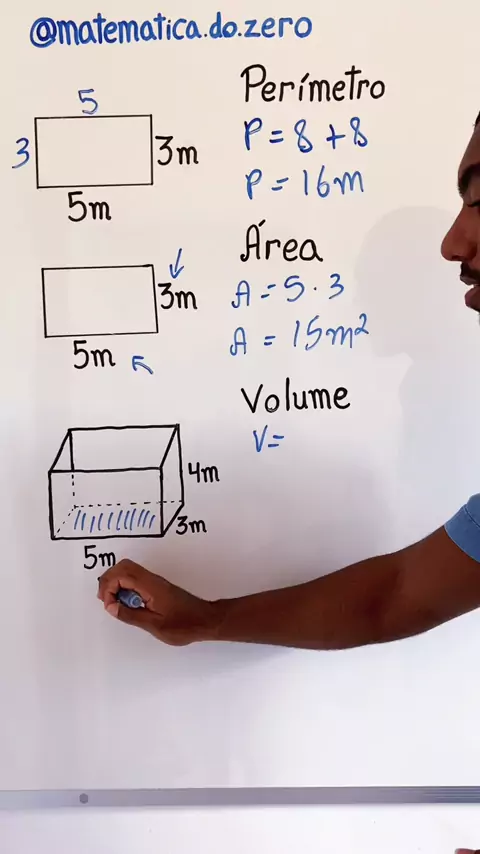 @matematica.do.zero
5
3
3m
5m
Perímetro
P = 8 + 8
P = 16m
3m
5m
Área
A = 5 . 3
A = 15m²
Volume
V =
4m
3m
5m